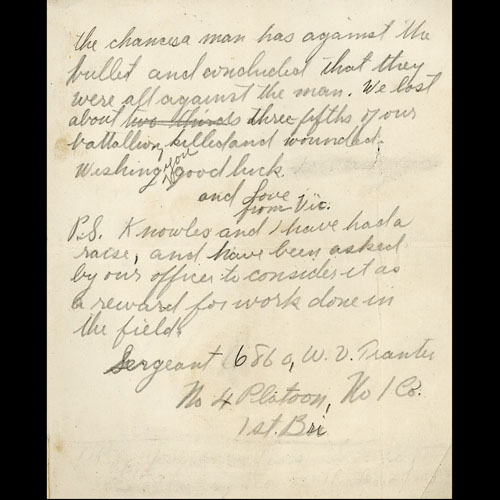 the chances a man has against the
bullet and concluded that they
were all against the man. We lost
about two thirds three fifths of our
battallion, killed and wounded.
Wishing you good luck
and love
from Vic.
P.S. Knowles and I have had a
raise, and have been asked
by our officer to consider it as
a reward for work done in
the field.
Sergeant W. V. Tranter
No 4 Platoon, No 1 Co.
1st. Bri